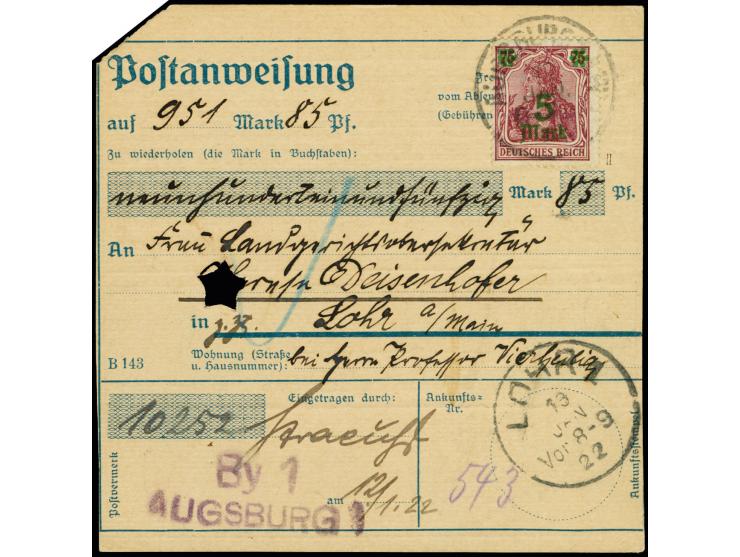 Postanweisung
75 75
5
Mark
DEUTSCHES REICH
vom Absen
(Gebühren
auf 951 Mark 85 Pf.
Zu wiederholen (die Mark in Buchstaben):
neunhunderteinundfünfzig Mark 85 Pf.
An Frau Landgerichtsobersekretär
Therese Deisenhofer
in z. Zt. Lohr a/Main
B 143 Wohnung (Straße u. Hausnummer): bei Herrn Professor Vierheilig
LOHR
13
JAN
Vor. 8-9
22
Eingetragen durch:
Ankunfts-
Nr.
10252
543
By 1
AUGSBURG 1
am 12/1.22
Postvermerk
Ankunftsstempel